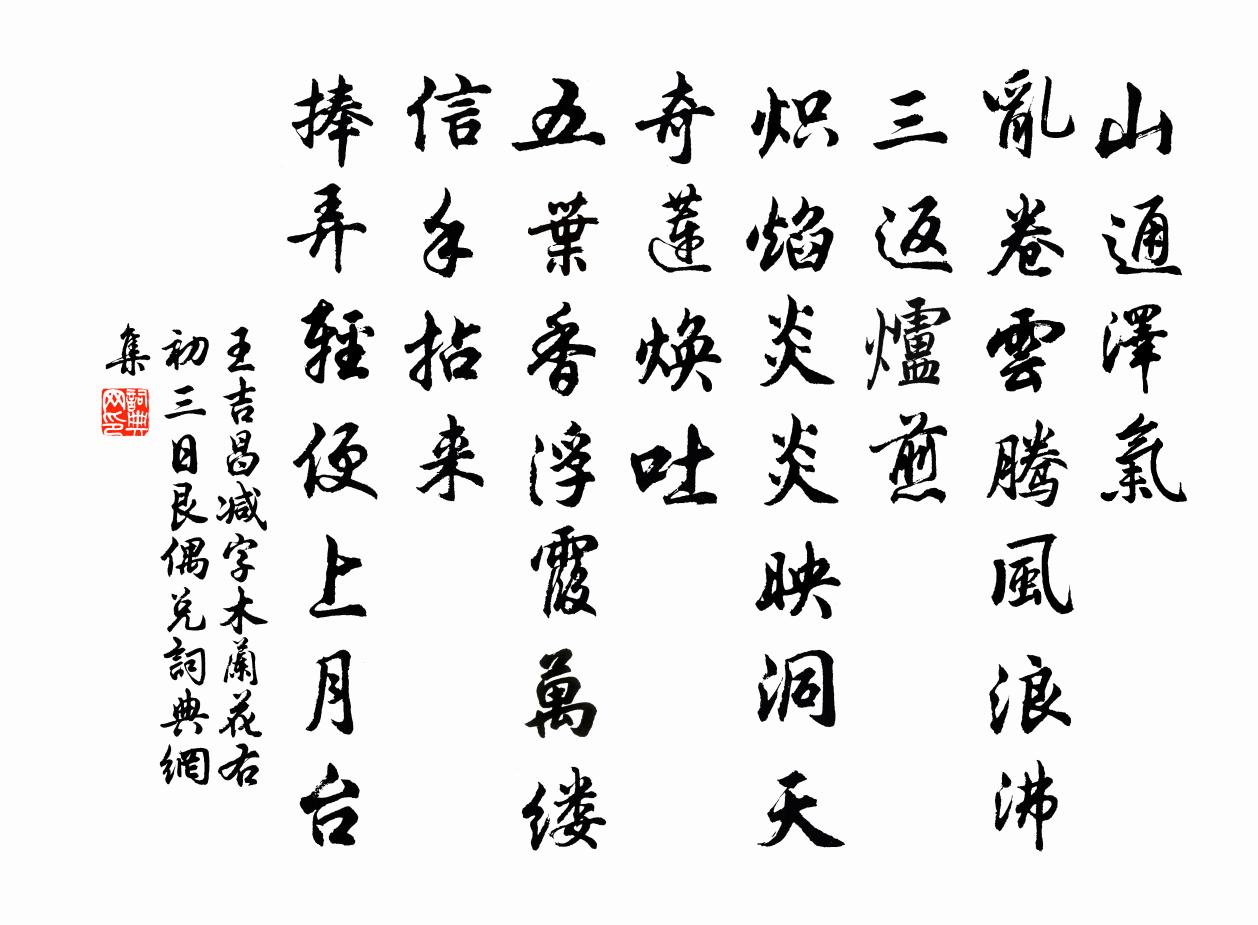 山通澤氣
亂卷雲騰風浪沸
三返爐煎
炽焰炎炎映洞天
奇蓮焕吐
五葉香浮霞萬缕
信手拈来
捧弄輕便上月台
王吉昌减字木蘭花右
初三日艮偶兑詞典網
集
詞典网印